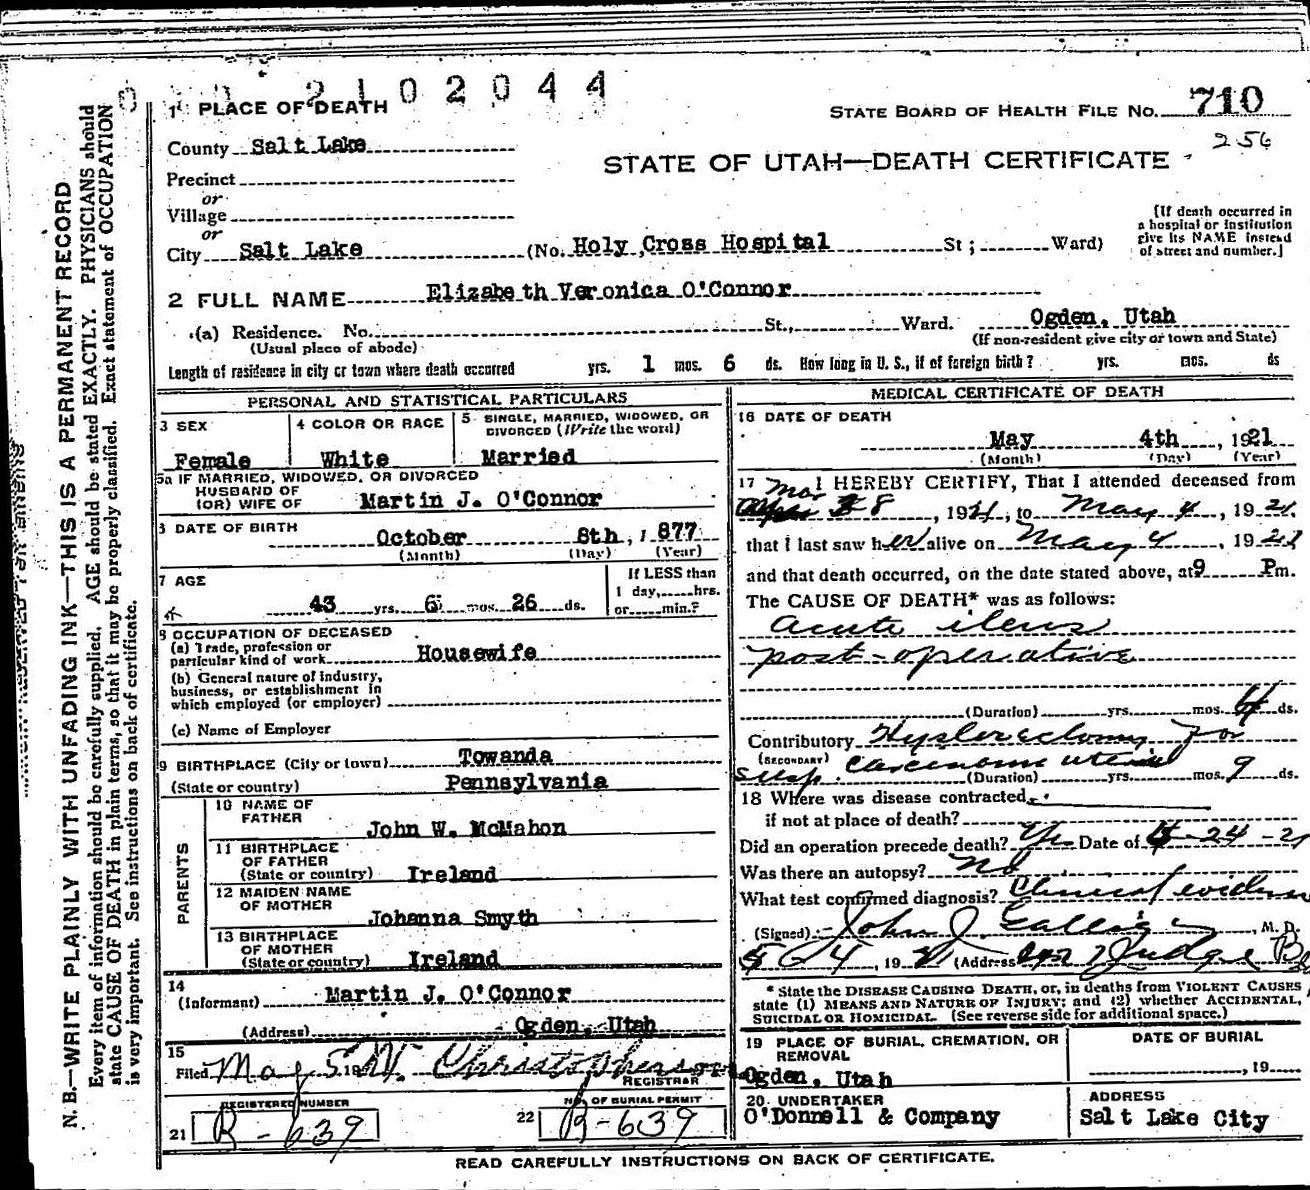 2102044
1 PLACE OF DEATH
STATE BOARD OF HEALTH FILE NO. 710
256
County Salt Lake
STATE OF UTAH—DEATH CERTIFICATE
Precinct
or
Village
or
City Salt Lake (No. Holy Cross Hospital St ; Ward)
[If death occurred in
a hospital or institution
give its NAME instead
of street and number.]
2 FULL NAME Elizabeth Veronica O'Connor
(a) Residence. No. St., Ward. Ogden, Utah
(Usual place of abode) (If non-resident give city or town and State)
Length of residence in city or town where death occurred yrs. 1 mos. 6 ds. How long in U. S., if of foreign birth? yrs. mos. ds
PERSONAL AND STATISTICAL PARTICULARS
3 SEX
Female
4 COLOR OR RACE
White
5 SINGLE, MARRIED, WIDOWED, OR
DIVORCED (Write the word)
Married
5a IF MARRIED, WIDOWED, OR DIVORCED
HUSBAND OF
(OR) WIFE OF Martin J. O'Connor
6 DATE OF BIRTH
October 8th, 1877
(Month) (Day) (Year)
7 AGE
43 yrs. 6 mos. 26 ds.
If LESS than
1 day, hrs.
or min.?
8 OCCUPATION OF DECEASED
(a) Trade, profession or
particular kind of work Housewife
(b) General nature of industry,
business, or establishment in
which employed (or employer)
(c) Name of Employer
9 BIRTHPLACE (City or town) Towanda
(State or country) Pennsylvania
PARENTS
10 NAME OF
FATHER
John W. McMahon
11 BIRTHPLACE
OF FATHER
(State or country) Ireland
12 MAIDEN NAME
OF MOTHER
Johanna Smyth
13 BIRTHPLACE
OF MOTHER
(State or country) Ireland
14
(Informant) Martin J. O'Connor
(Address) Ogden, Utah
15
Filed May 5 19 W. Christopherson
REGISTRAR
REGISTERED NUMBER
21 B-639
NO. OF BURIAL PERMIT
22 B-639
MEDICAL CERTIFICATE OF DEATH
16 DATE OF DEATH
May 4th, 1921
(Month) (Day) (Year)
17 I HEREBY CERTIFY, That I attended deceased from
Mar 8, 1921, to May 4, 1921,
that I last saw her alive on May 4, 1921
and that death occurred, on the date stated above, at 9 Pm.
The CAUSE OF DEATH* was as follows:
acute ileus
post-operative
(Duration) yrs. mos. 4 ds.
Contributory Hysterectomy for
(SECONDARY) susp. carcinoma uteri
(Duration) yrs. mos. 9 ds.
18 Where was disease contracted
if not at place of death?
Did an operation precede death? Yes Date of 4-24-21
Was there an autopsy? No
What test confirmed diagnosis? Clinical evidence
(Signed) John J. Galligan, M. D.
5/4, 1921 (Address) Judge
* State the DISEASE CAUSING DEATH, or, in deaths from VIOLENT CAUSES
state (1) MEANS AND NATURE OF INJURY; and (2) whether ACCIDENTAL,
SUICIDAL OR HOMICIDAL. (See reverse side for additional space.)
19 PLACE OF BURIAL, CREMATION, OR
REMOVAL
Ogden, Utah
DATE OF BURIAL
, 19
20 UNDERTAKER
O'Donnell & Company
ADDRESS
Salt Lake City
READ CAREFULLY INSTRUCTIONS ON BACK OF CERTIFICATE.
N. B.—WRITE PLAINLY WITH UNFADING INK—THIS IS A PERMANENT RECORD
Every item of information should be carefully supplied. AGE should be stated EXACTLY. PHYSICIANS should
state CAUSE OF DEATH in plain terms, so that it may be properly classified. Exact statement of OCCUPATION
is very important. See instructions on back of certificate.